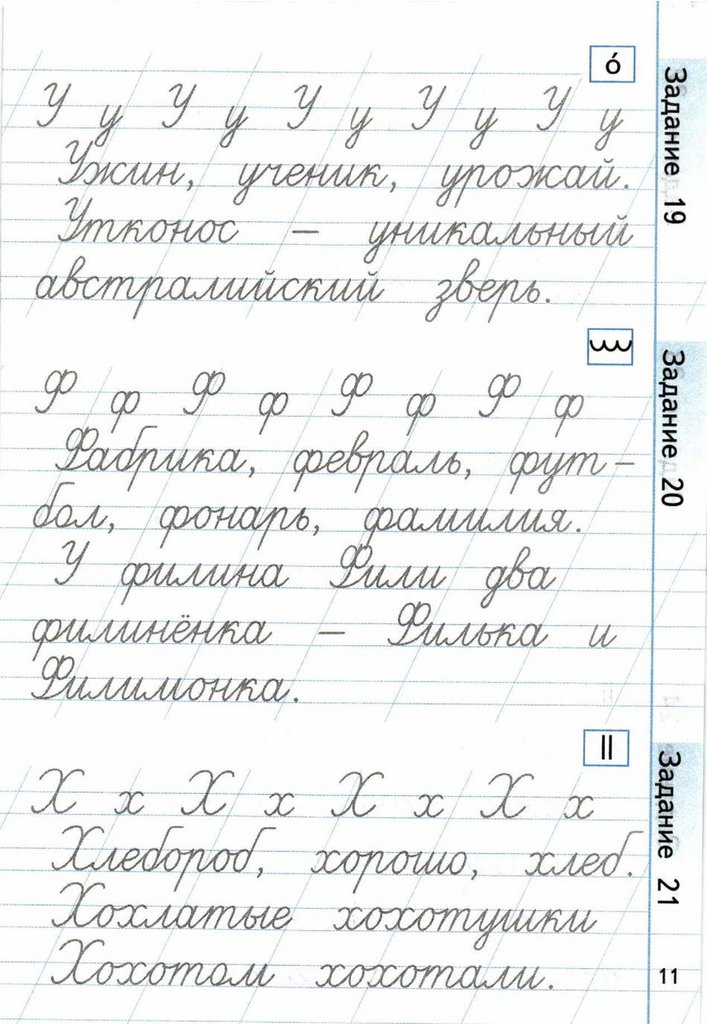 Задание 19
о́
У у У у У у У у У у
Ужин, ученик, урожай.
Утконос – уникальный
австралийский зверь.
Задание 20
Ф ф Ф ф Ф ф Ф ф
Фабрика, февраль, фут-
бол, фонарь, фамилия.
У филина Фили два
филинёнка – Филька и
Филимонка.
Задание 21
Х х Х х Х х Х х
Хлебороб, хорошо, хлеб.
Хохлатые хохотушки
Хохотом хохотали.
11